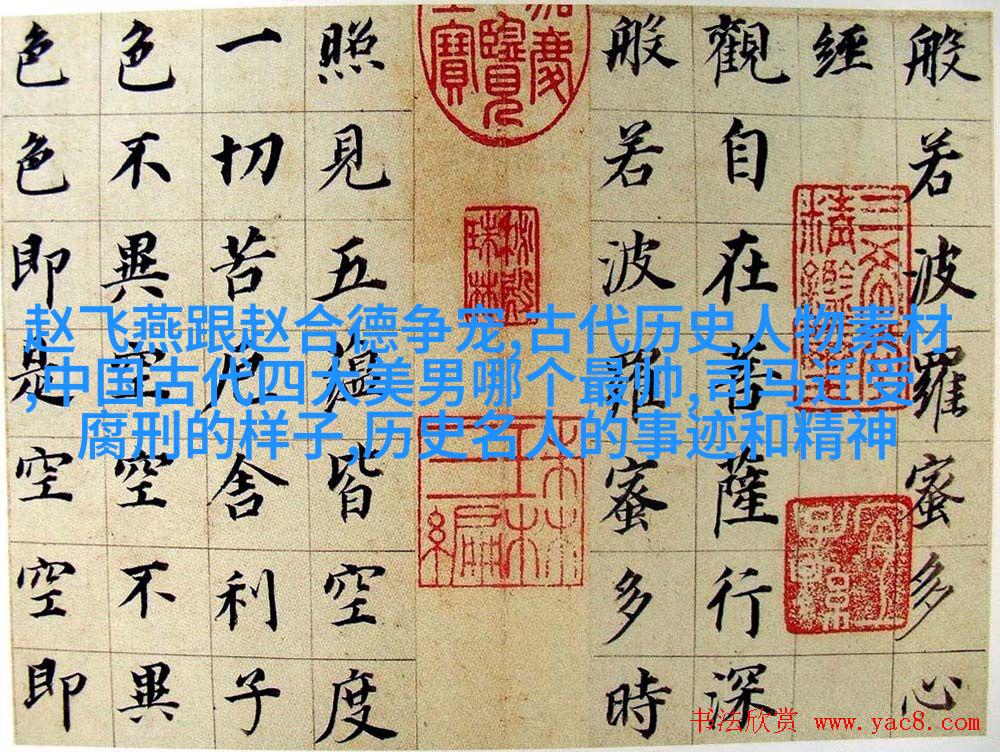 般若波羅蜜多心
經
觀自在菩薩行深
般若波羅蜜多時
照見五蘊皆空度
一切苦厄舍利子
色不異空空不異
色色即是空空即
秘殿珠林
赵飞燕跟赵合德争宠,古代历史人物素材
,中国古代四大美男哪个最帅,司马迁受
腐刑的样子,历史名人的事迹和精神
书法欣赏 www.yac8.com